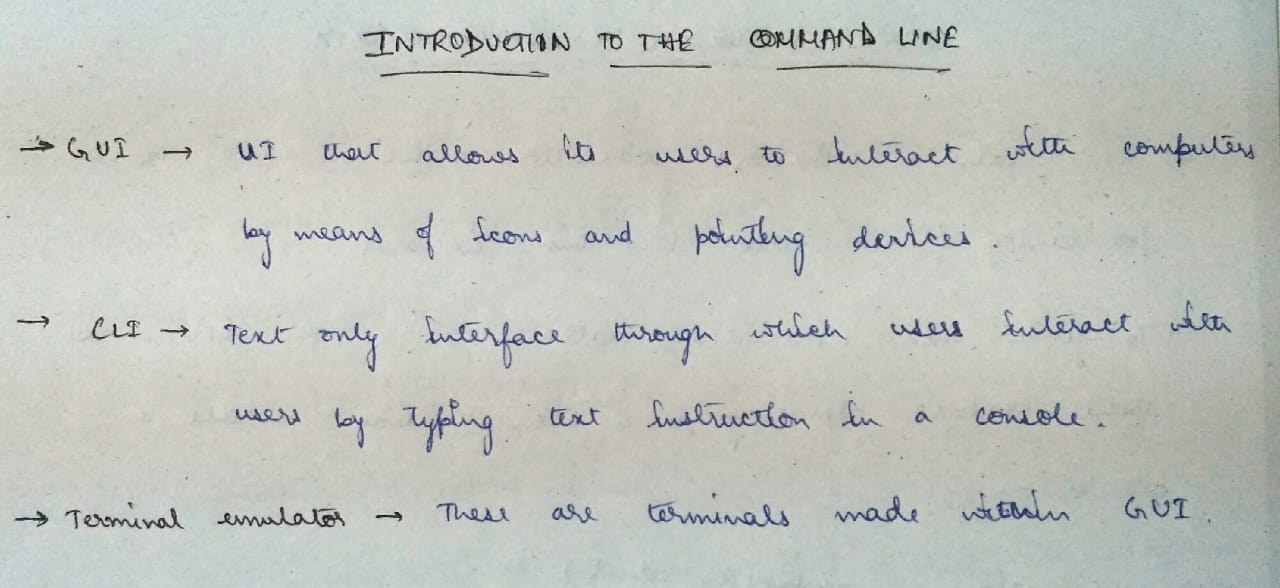 INTRODUCTION TO THE COMMAND LINE
→ GUI → UI that allows its users to interact with computers
by means of icons and pointing devices.
→ CLI → Text only interface through which users interact with
users by typing text instruction in a console.
→ Terminal emulator → These are terminals made within GUI.